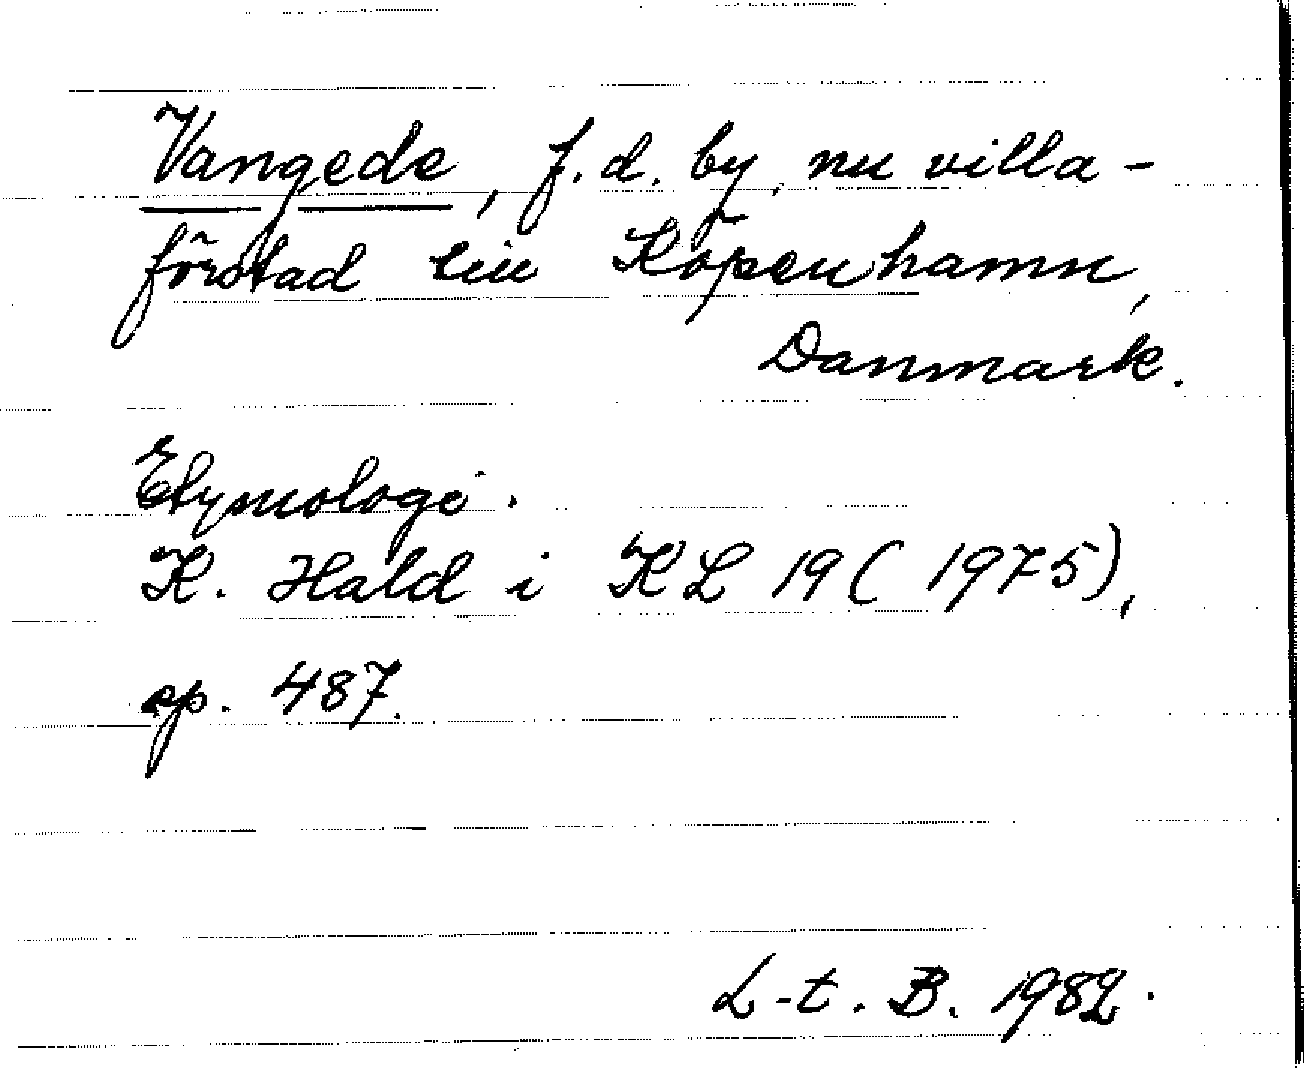 Vangede, f.d. by, nu villa-
förstad till Köpenhamn,
Danmark.
Etymologi.
K. Hald i KL 19 (1975),
sp. 487.
L-t. B. 1982.